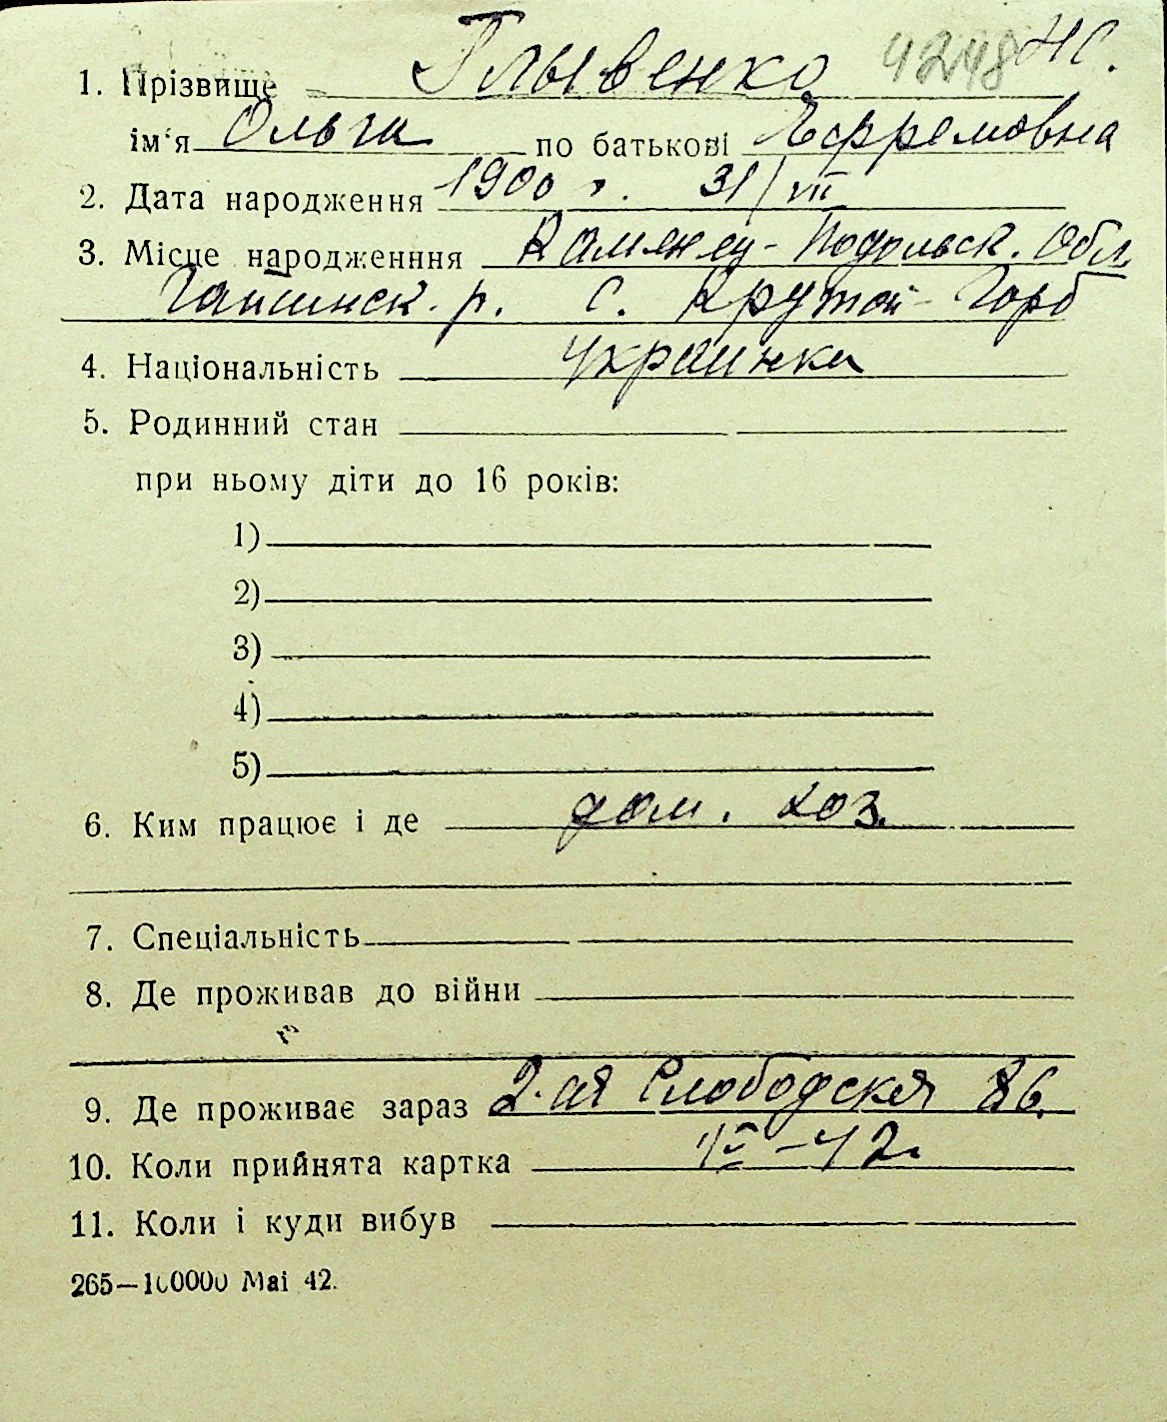 4248 НС.
1. Прізвище Глывенко
ім'я Ольга по батькові Ефремовна
2. Дата народження 1900 г. 31/VII
3. Місце народженння Камянец-Подольск. Обл.
Гайсинск. р. с. Крутой-Горб
4. Національність украинка
5. Родинний стан
при ньому діти до 16 років:
1)
2)
3)
4)
5)
6. Ким працює і де дом. хоз.
7. Спеціальність
8. Де проживав до війни
9. Де проживає зараз 2-ая Слободская 86.
10. Коли прийнята картка IV-42.
11. Коли і куди вибув
265—100000 Mai 42.